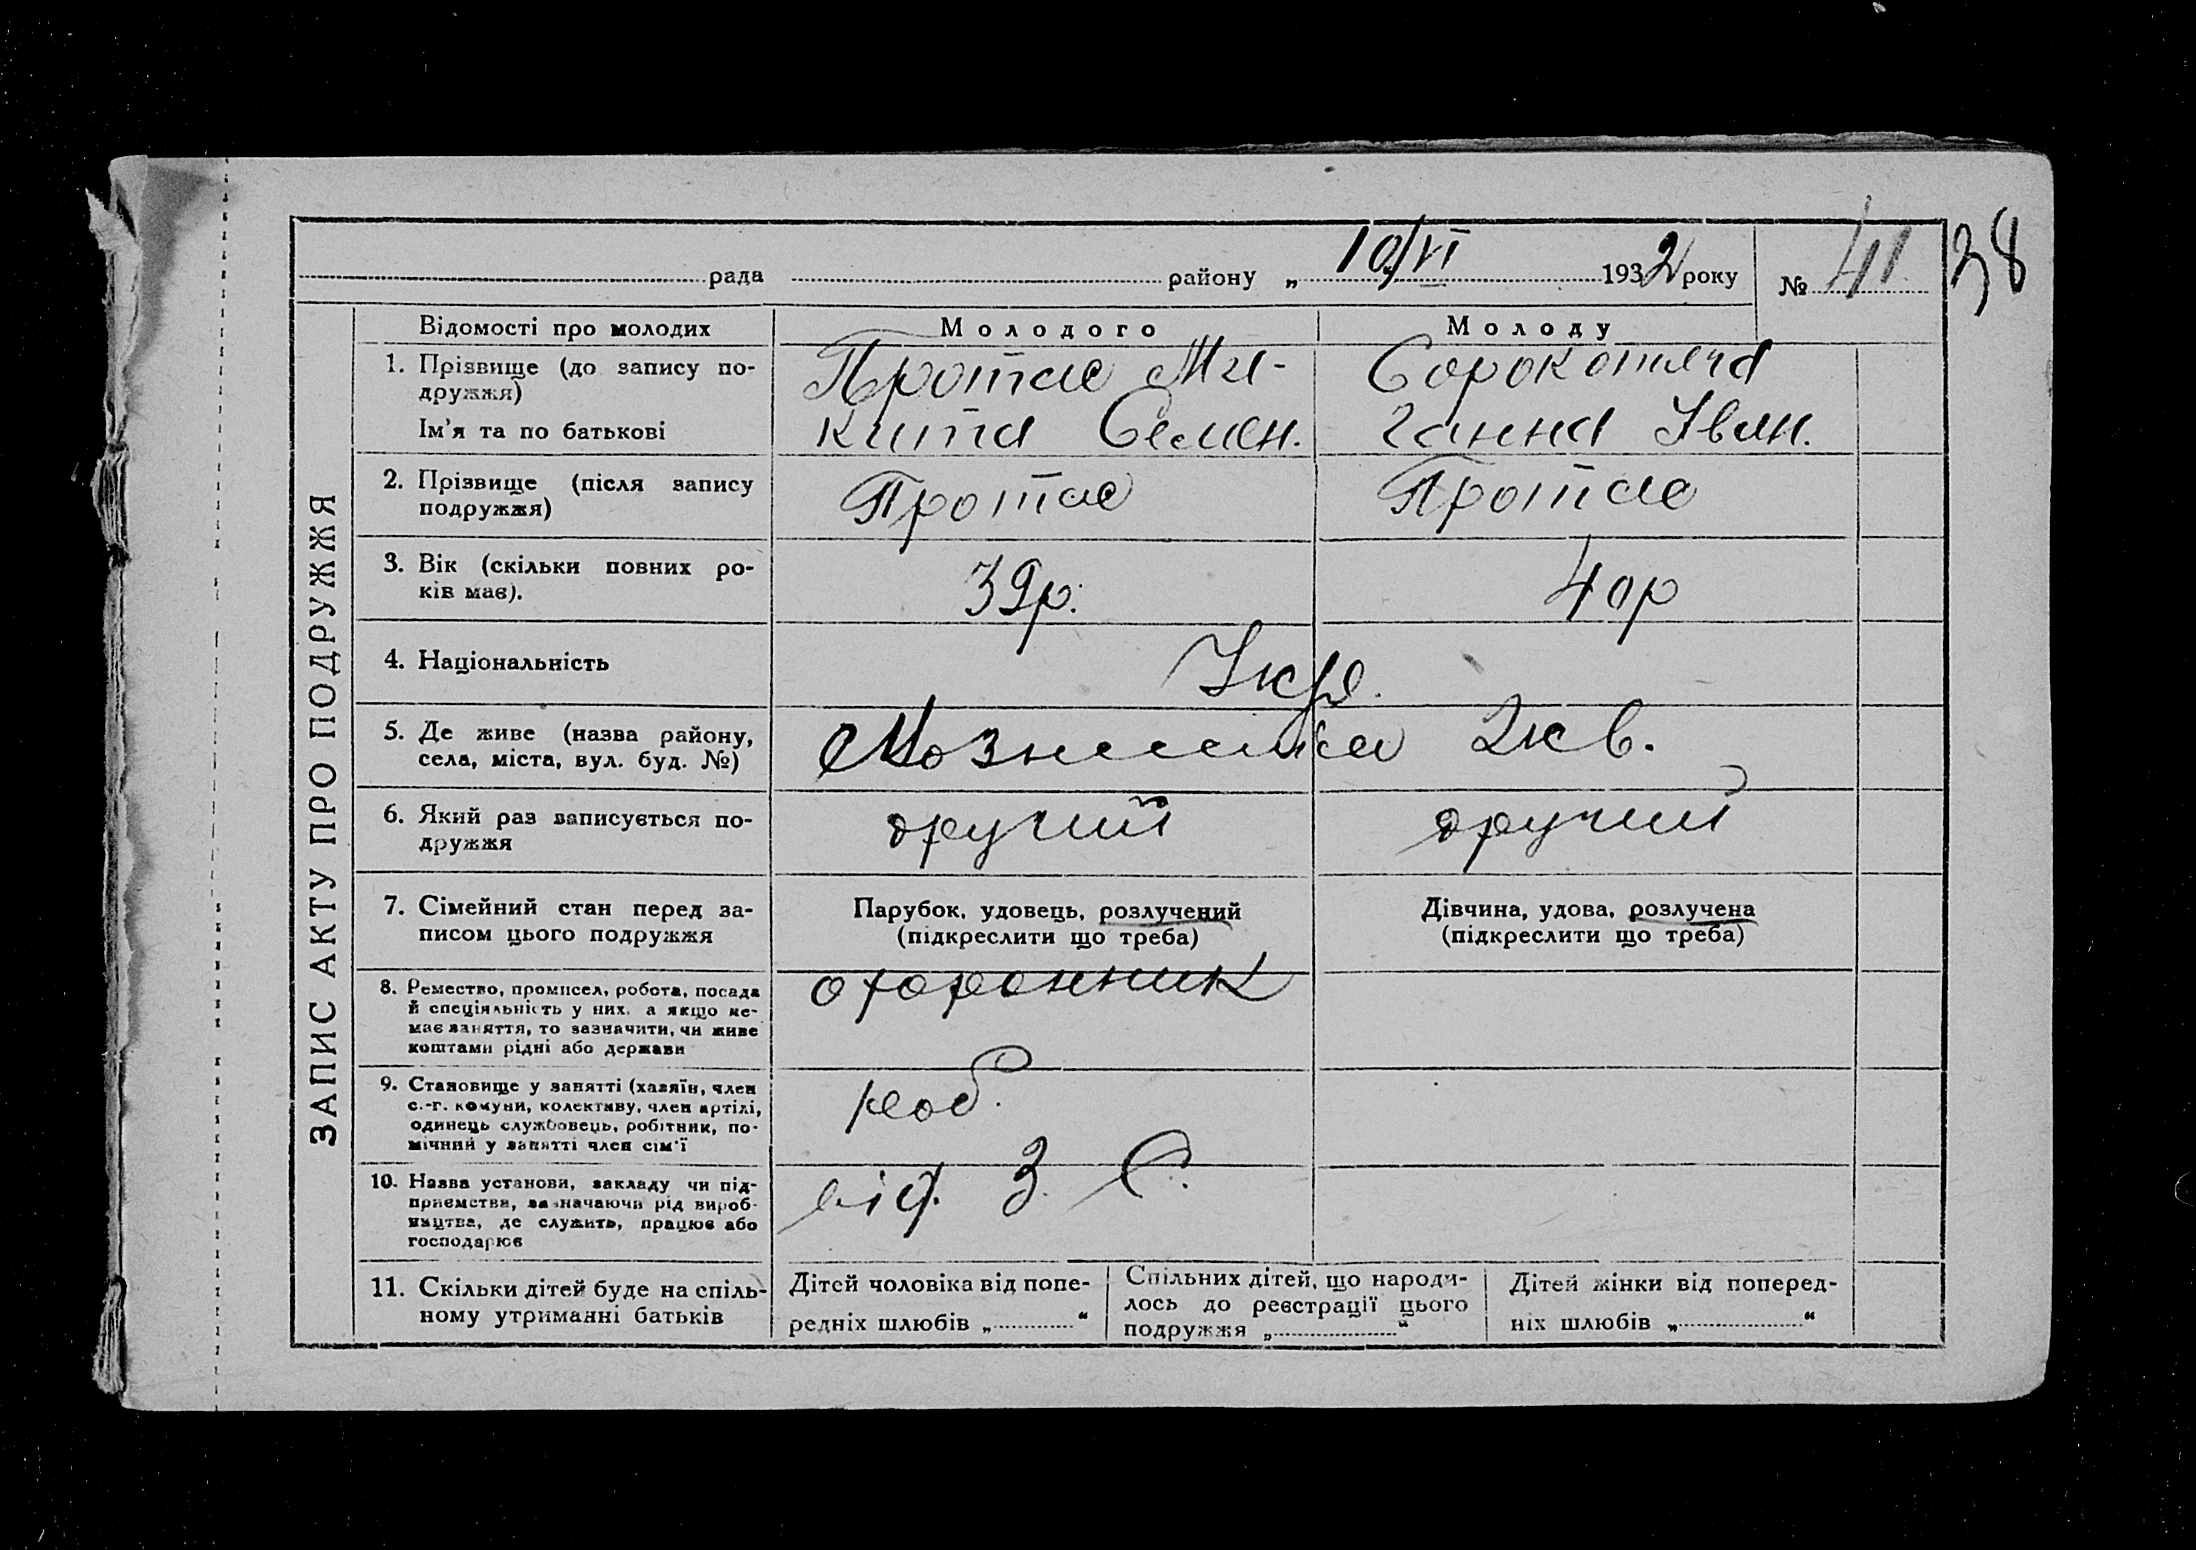 рада району „ 10/VI 1932 року № 41 38
ЗАПИС АКТУ ПРО ПОДРУЖЖЯ
Відомості про молодих Молодого Молоду
1. Прізвище (до запису по-
дружжя)
Ім'я та по батькові
Протас Ми-
кита Семен.
Сорокотяга
Ганна Іван.
2. Прізвище (після запису
подружжя)
Протас
Протас
3. Вік (скільки повних ро-
ків має).
39р.
40р
4. Національність
Укр.
5. Де живе (назва району,
села, міста, вул. буд. №)
2кв.
6. Який раз записується по-
дружжя
другий
другий
7. Сімейний стан перед за-
писом цього подружжя
Парубок, удовець, розлучений
(підкреслити що треба)
Дівчина, удова, розлучена
(підкреслити що треба)
8. Ремество, промисел, робота, посада
й спеціяльність у них, а якщо не-
має заняття, то зазначити, чи живе
коштами рідні або держави
охоронник
9. Становище у занятті (хазяїн, член
с.-г. комуни, колективу, член артілі,
одинець службовець, робітник, по-
мічний у занятті член сім'ї
роб.
10. Назва установи, закладу чи під-
приємства, зазначаючи рід вироб-
ництва, де служить, працює або
господарює
З. С.
11. Скільки дітей буде на спіль-
ному утриманні батьків
Дітей чоловіка від попе-
редніх шлюбів „ “
Спільних дітей, що народи-
лось до реєстрації цього
подружжя „ “
Дітей жінки від поперед-
ніх шлюбів „ “